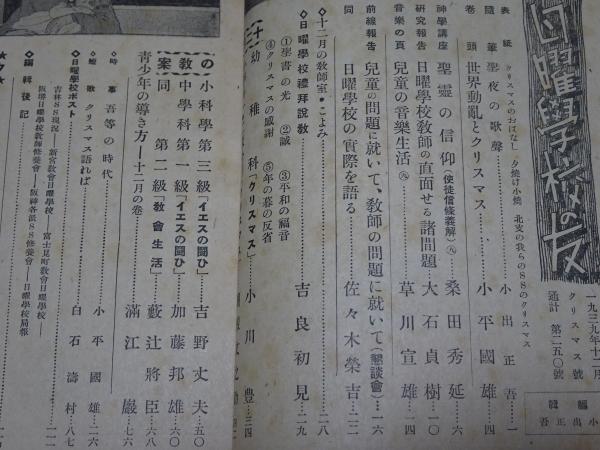 日曜學校の友
一九三九年十二月
クリスマス號
通計 第二五〇號
編輯
小出正吾
表紙 クリスマスのおはなし
夕燒け小燒 北支の我らのSSのクリスマス
隨筆 聖夜の歌聲 小出正吾…一
卷頭 世界動亂とクリスマス 小平國雄…四
神學講座 聖靈の信仰(使徒信條義解)(八) 桑田秀延…六
研究報告 日曜學校教師の直面せる諸問題 大石貞樹…一〇
音樂の頁 兒童の音樂生活(八) 草川宣雄…一四
前線報告 兒童の問題に就いて、教師の問題に就いて(懇談會)…一六
同 日曜學校の實際を語る 佐々木榮吉…二二
十二月の教師室・こよみ…二八
日曜學校禮拜說教 吉良初見…二九
①聖書の光 ②誠 ③平和の福音
④クリスマスの感謝 ⑤年の暮の反省
幼稚科「クリスマス」 小川豊…三四
小科學第三級「イエスの鬪ひ」 吉野丈夫…五〇
中學科第一級「イエスの鬪ひ」 加藤邦雄…六〇
同 第二級「教會生活」 藪辻將臣…六八
の
教
案
靑少年の導き方―十二月の卷 滿江巖…七六
時事 吾等の時代 小平國雄…二六
クリスマス語れば 白石濤村…八七
日曜學校ポスト
吉林SS現況―新宮教會日曜學校―富士見町教會日曜學校―
阪堺日曜學校教師修養會―阪神各派SS修養會―日曜學校局報
編輯後記